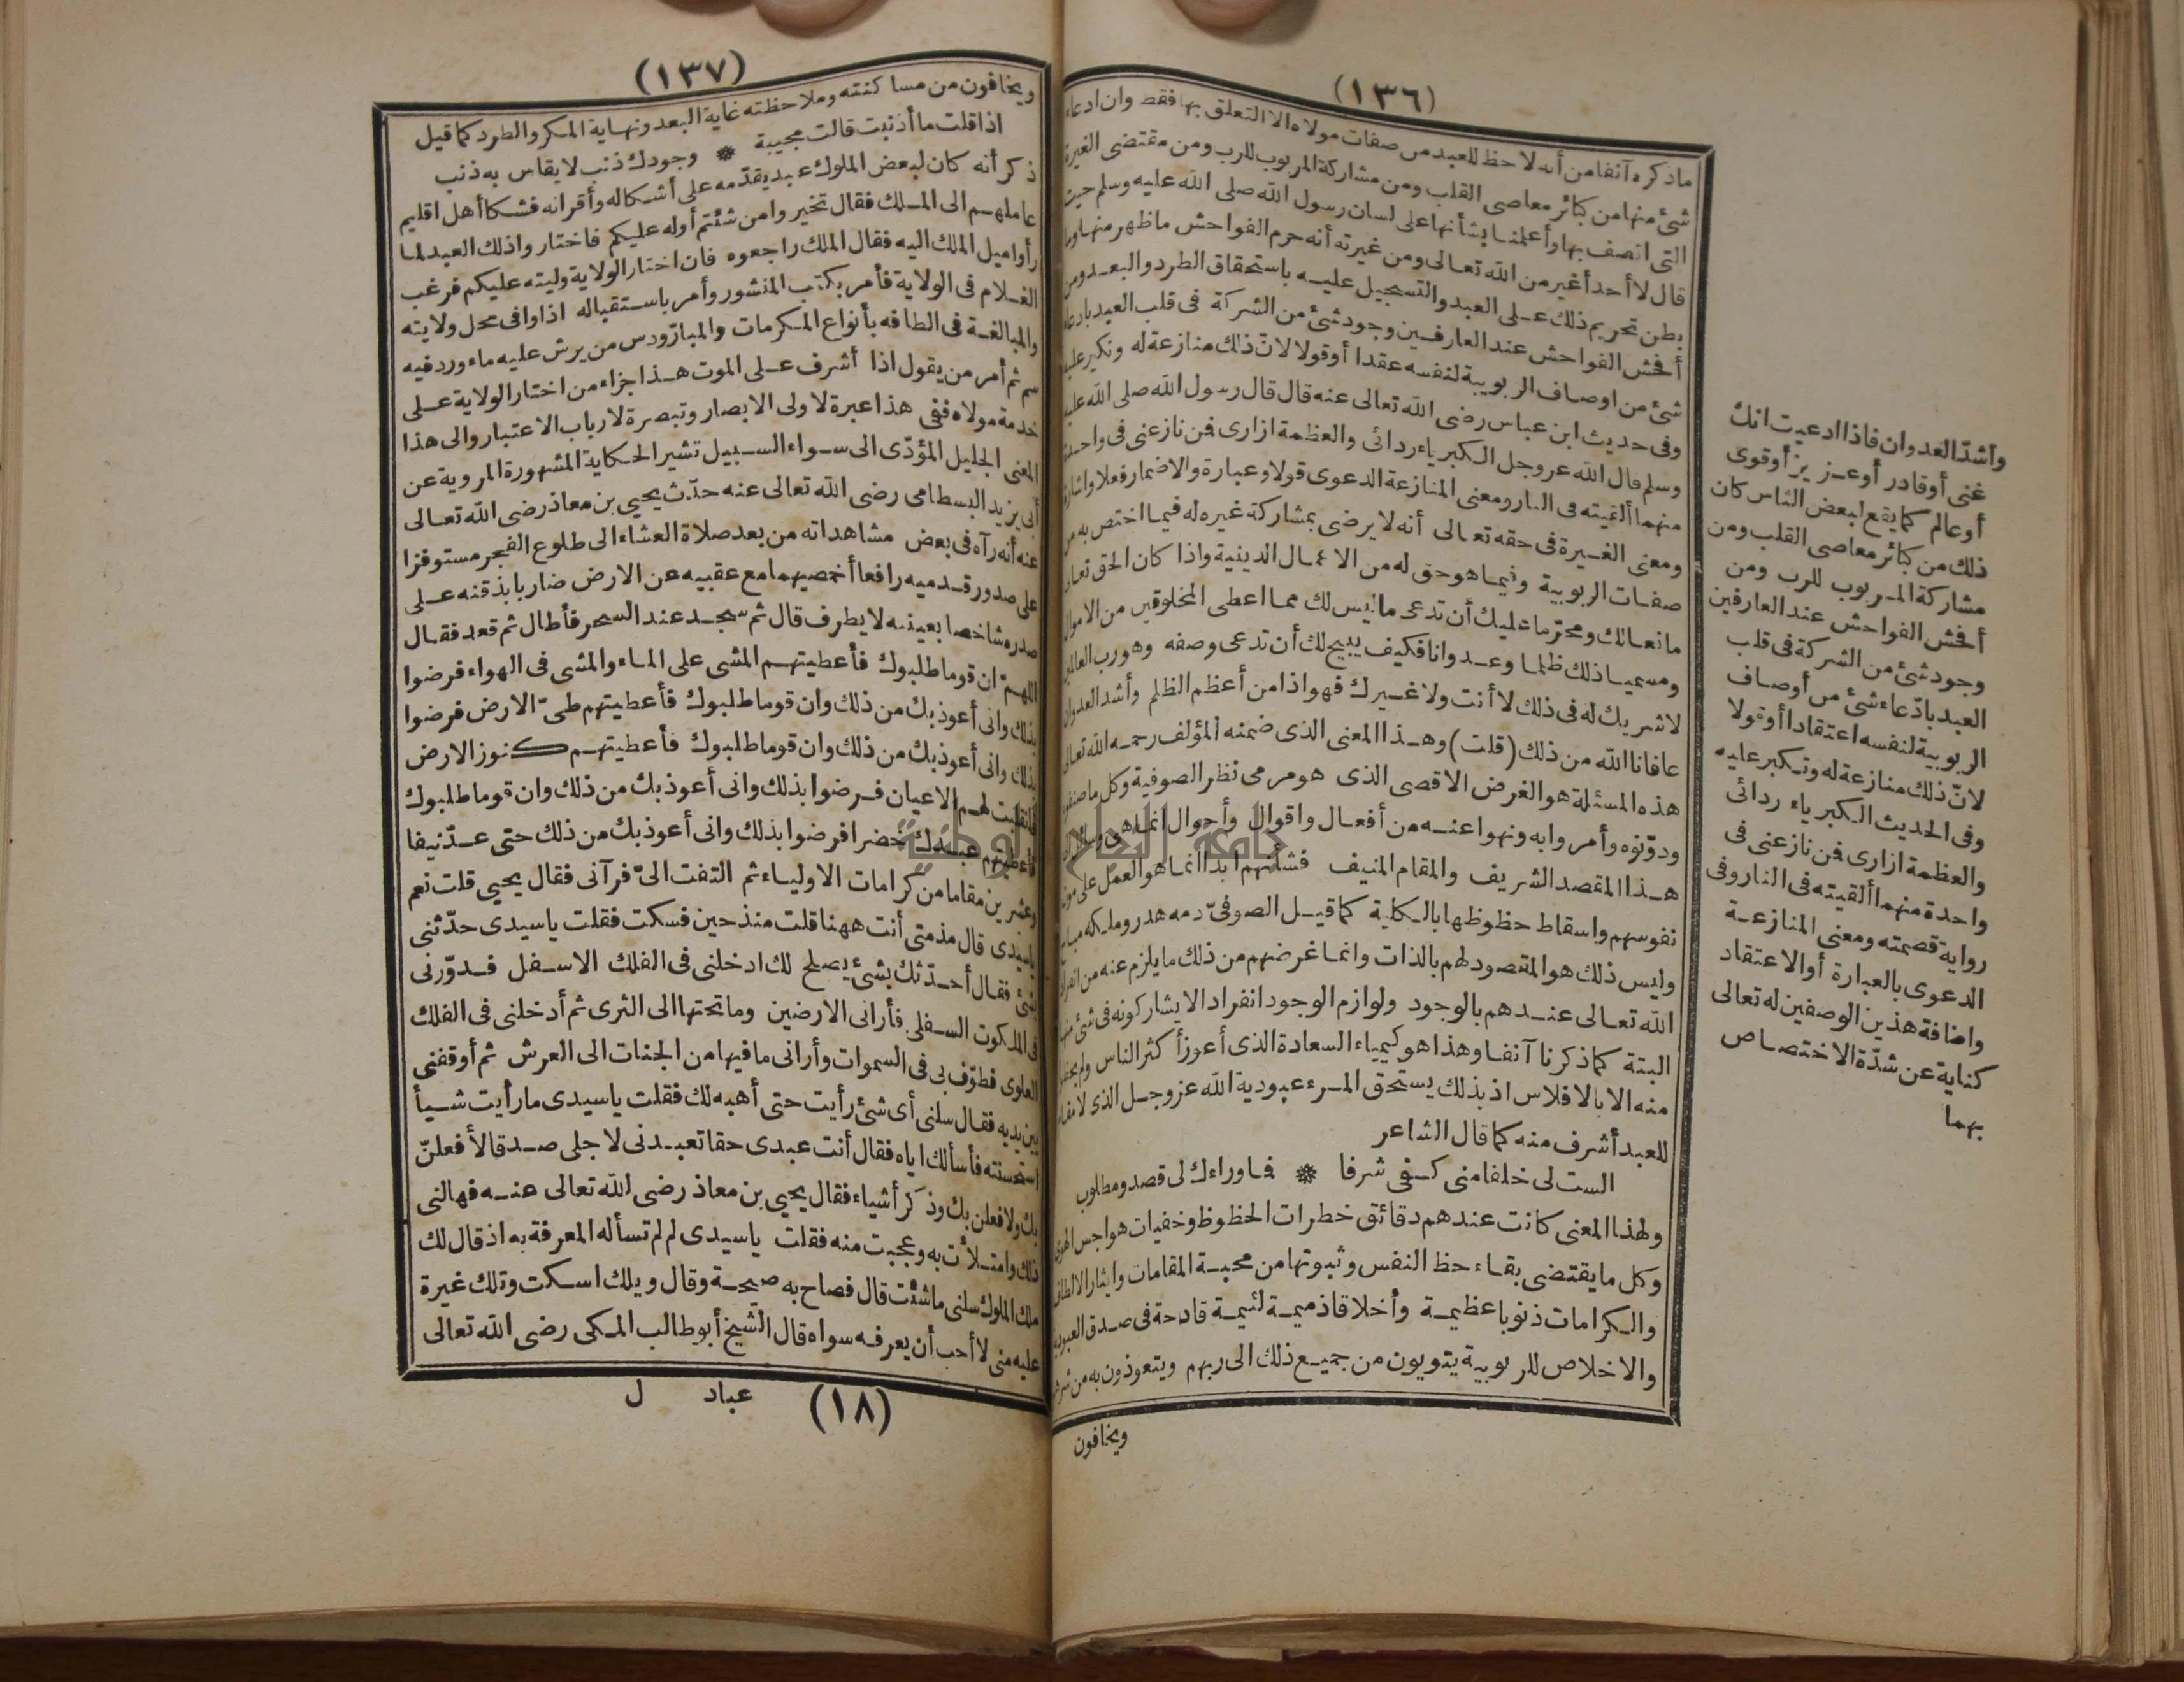 (١٣٦)
ماذكره آنفا من أنه لا حظ للعبد من صفات مولاه الا التعلق بها فقط وان ادعاء
شئ منها من كبائر معاصى القلب ومن مشاركة المربوب للرب ومن مقتضى الغيرة
التى اتصف بها وأعلمنا بشأنها على لسان رسول الله صلى الله عليه وسلم حيث
قال لا أحد أغير من الله تعالى ومن غيرته أنه حرم الفواحش ماظهر منها وما
بطن تحريم ذلك على العبد والتسجيل عليه باستحقاق الطرد والبعد ومن
أفحش الفواحش عند العارفين وجود شئ من الشركة فى قلب العبد بادعاء
شئ من اوصاف الربوبية لنفسه عقدا أو قولا لانّ ذلك منازعة له وتكبر عليه
وفى حديث ابن عباس رضى الله تعالى عنه قال قال رسول الله صلى الله عليه
وسلم قال الله عز وجل الكبرياء ردائى والعظمة ازارى فمن نازعنى فى واحدة
منهما ألقيته فى النار ومعنى المنازعة الدعوى قولا وعبارة والاضمار فعلا واشارة
ومعنى الغيرة فى حقه تعالى أنه لا يرضى بمشاركة غيره له فيما اختص به من
صفات الربوبية وفيما هو حق له من الاعمال الدينية واذا كان الحق تعالى
مانعالك ومحرّما عليك أن تدعى ماليس لك مما اعطى المخلوقين من الاموال
ومسميا ذلك ظلما وعدوانا فكيف يبيح لك أن تدعى وصفه وهو رب العالمين
لا شريك له فى ذلك لا أنت ولا غيرك فهو اذا من أعظم الظلم وأشد العدوان
عافانا الله من ذلك (قلت) وهذا المعنى الذى ضمنه المؤلف رحمه الله تعالى
هذه المسئلة هو الغرض الاقصى الذى هو مرمى نظر الصوفية وكل ما صنفوه
ودوّنوه وأمروا به ونهوا عنه من أفعال واقوال وأحوال انما هى وسائل الى
هذا المقصد الشريف والمقام المنيف فشأنهم ابدا انما هو العمل على موت
نفوسهم واسقاط حظوظها بالكلية كما قيل الصوفىّ دمه هدر وملكه مباح
وليس ذلك هو المقصود لهم بالذات وانما غرضهم من ذلك مايلزم عنه من انفراد
الله تعالى عندهم بالوجود ولوازم الوجود انفرادا لا يشاركونه فى شئ منها
البتة كما ذكرنا آنفا وهذا هو كيمياء السعادة الذى أعوز أكثر الناس ولم يحظوا
منه الا بالافلاس اذ بذلك يستحق المرء عبودية الله عز وجل الذى لا مقام
للعبد أشرف منه كما قال الشاعر
الست لى خلفا منى كفى شرفا * فما وراءك لى قصد ومطلوب
ولهذا المعنى كانت عندهم دقائق خطرات الحظوظ وخفيات هواجس الهوى
وكل مايقتضى بقاء حظ النفس وثبوتها من محبة المقامات وايثار الالطاف
والكرامات ذنوبا عظيمة وأخلاقا ذميمة لئيمة قادحة فى صدق العبودية
والاخلاص للربوبية يتوبون من جميع ذلك الى ربهم ويتعوذون به من شره
ويخافون
وأشدّ العدوان فاذا ادعيت انك
غنى أو قادر أو عزيز أو قوى
أو عالم كما يقع لبعض الناس كان
ذلك من كبائر معاصى القلب ومن
مشاركة المربوب للرب ومن
أفحش الفواحش عند العارفين
وجود شئ من الشركة فى قلب
العبد بادّعاء شئ من أوصاف
الربوبية لنفسه اعتقادا أو قولا
لانّ ذلك منازعة له وتكبر عليه
وفى الحديث الكبرياء ردائى
والعظمة ازارى فمن نازعنى فى
واحدة منهما ألقيته فى النار وفى
رواية قصمته ومعنى المنازعة
الدعوى بالعبارة أو الاعتقاد
واضافة هذين الوصفين له تعالى
كناية عن شدّة الاختصاص
بهما
(١٣٧)
ويخافون من مساكنته وملاحظته غاية البعد ونهاية المكر والطرد كما قيل
اذا قلت ما أذنبت قالت مجيبة * وجودك ذنب لا يقاس به ذنب
ذكر أنه كان لبعض الملوك عبد يقدّمه على أشكاله وأقرانه فشكا أهل اقليم
عاملهم الى الملك فقال تخيروا من شئتم أوله عليكم فاختاروا ذلك العبد لما
رأوا ميل الملك اليه فقال الملك راجعوه فان اختار الولاية وليته عليكم فرغب
الغلام فى الولاية فأمر بكتب المنشور وأمر باستقباله اذا وافى محل ولايته
والمبالغة فى الطافه بأنواع المكرمات والمبارّ ودس من يرش عليه ماء ورد فيه
سم ثم أمر من يقول اذا أشرف على الموت هذا جزاء من اختار الولاية على
خدمة مولاه ففى هذا عبرة لاولى الابصار وتبصرة لارباب الاعتبار والى هذا
المعنى الجليل المؤدّى الى سواء السبيل تشير الحكاية المشهورة المروية عن
أبى يزيد البسطامى رضى الله تعالى عنه حدّث يحيى بن معاذ رضى الله تعالى
عنه أنه رآه فى بعض مشاهداته من بعد صلاة العشاء الى طلوع الفجر مستوفزا
على صدور قدميه رافعا أخمصيهما مع عقبيه عن الارض ضاربا بذقنه على
صدره شاخصا بعينيه لا يطرف قال ثم سجد عند السحر فأطال ثم قعد فقال
اللهم ان قوما طلبوك فأعطيتهم المشى على الماء والمشى فى الهواء فرضوا
بذلك وانى أعوذ بك من ذلك وان قوما طلبوك فأعطيتهم طىّ الارض فرضوا
بذلك وانى أعوذ بك من ذلك وان قوما طلبوك فأعطيتهم كنوز الارض
فانقلبت لهم الاعيان فرضوا بذلك وانى أعوذ بك من ذلك وان قوما طلبوك
فأعطيتهم عبدك خضرا فرضوا بذلك وانى أعوذ بك من ذلك حتى عدّ نيفا
وعشرين مقاما من كرامات الاولياء ثم التفت الىّ فرآنى فقال يحيى قلت نعم
ياسيدى قال مذ متى أنت ههنا قلت منذ حين فسكت فقلت ياسيدى حدّثنى
بشئ فقال أحدّثك بشئ يصلح لك ادخلنى فى الفلك الاسفل فدوّرنى
فى الملكوت السفلى فأرانى الارضين وما تحتها الى الثرى ثم أدخلنى فى الفلك
العلوى فطوّف بى فى السموات وأرانى ما فيها من الجنات الى العرش ثم أوقفنى
بين يديه فقال سلنى أى شئ رأيت حتى أهبه لك فقلت ياسيدى مارأيت شيأ
استحسنته فأسألك اياه فقال أنت عبدى حقا تعبدنى لاجلى صدقا لأفعلنّ
بك ولافعلن بك وذكر أشياء فقال يحيى بن معاذ رضى الله تعالى عنه فهالنى
ذلك وامتلأت به وعجبت منه فقلت ياسيدى لم لم تسأله المعرفة به اذ قال لك
ملك الملوك سلنى ماشئت قال فصاح به صيحة وقال ويلك اسكت وتلك غيرة
عليه منى لا أحب أن يعرفه سواه قال الشيخ أبو طالب المكى رضى الله تعالى
(١٨) عباد ل
جامعة النجاح الوطنية